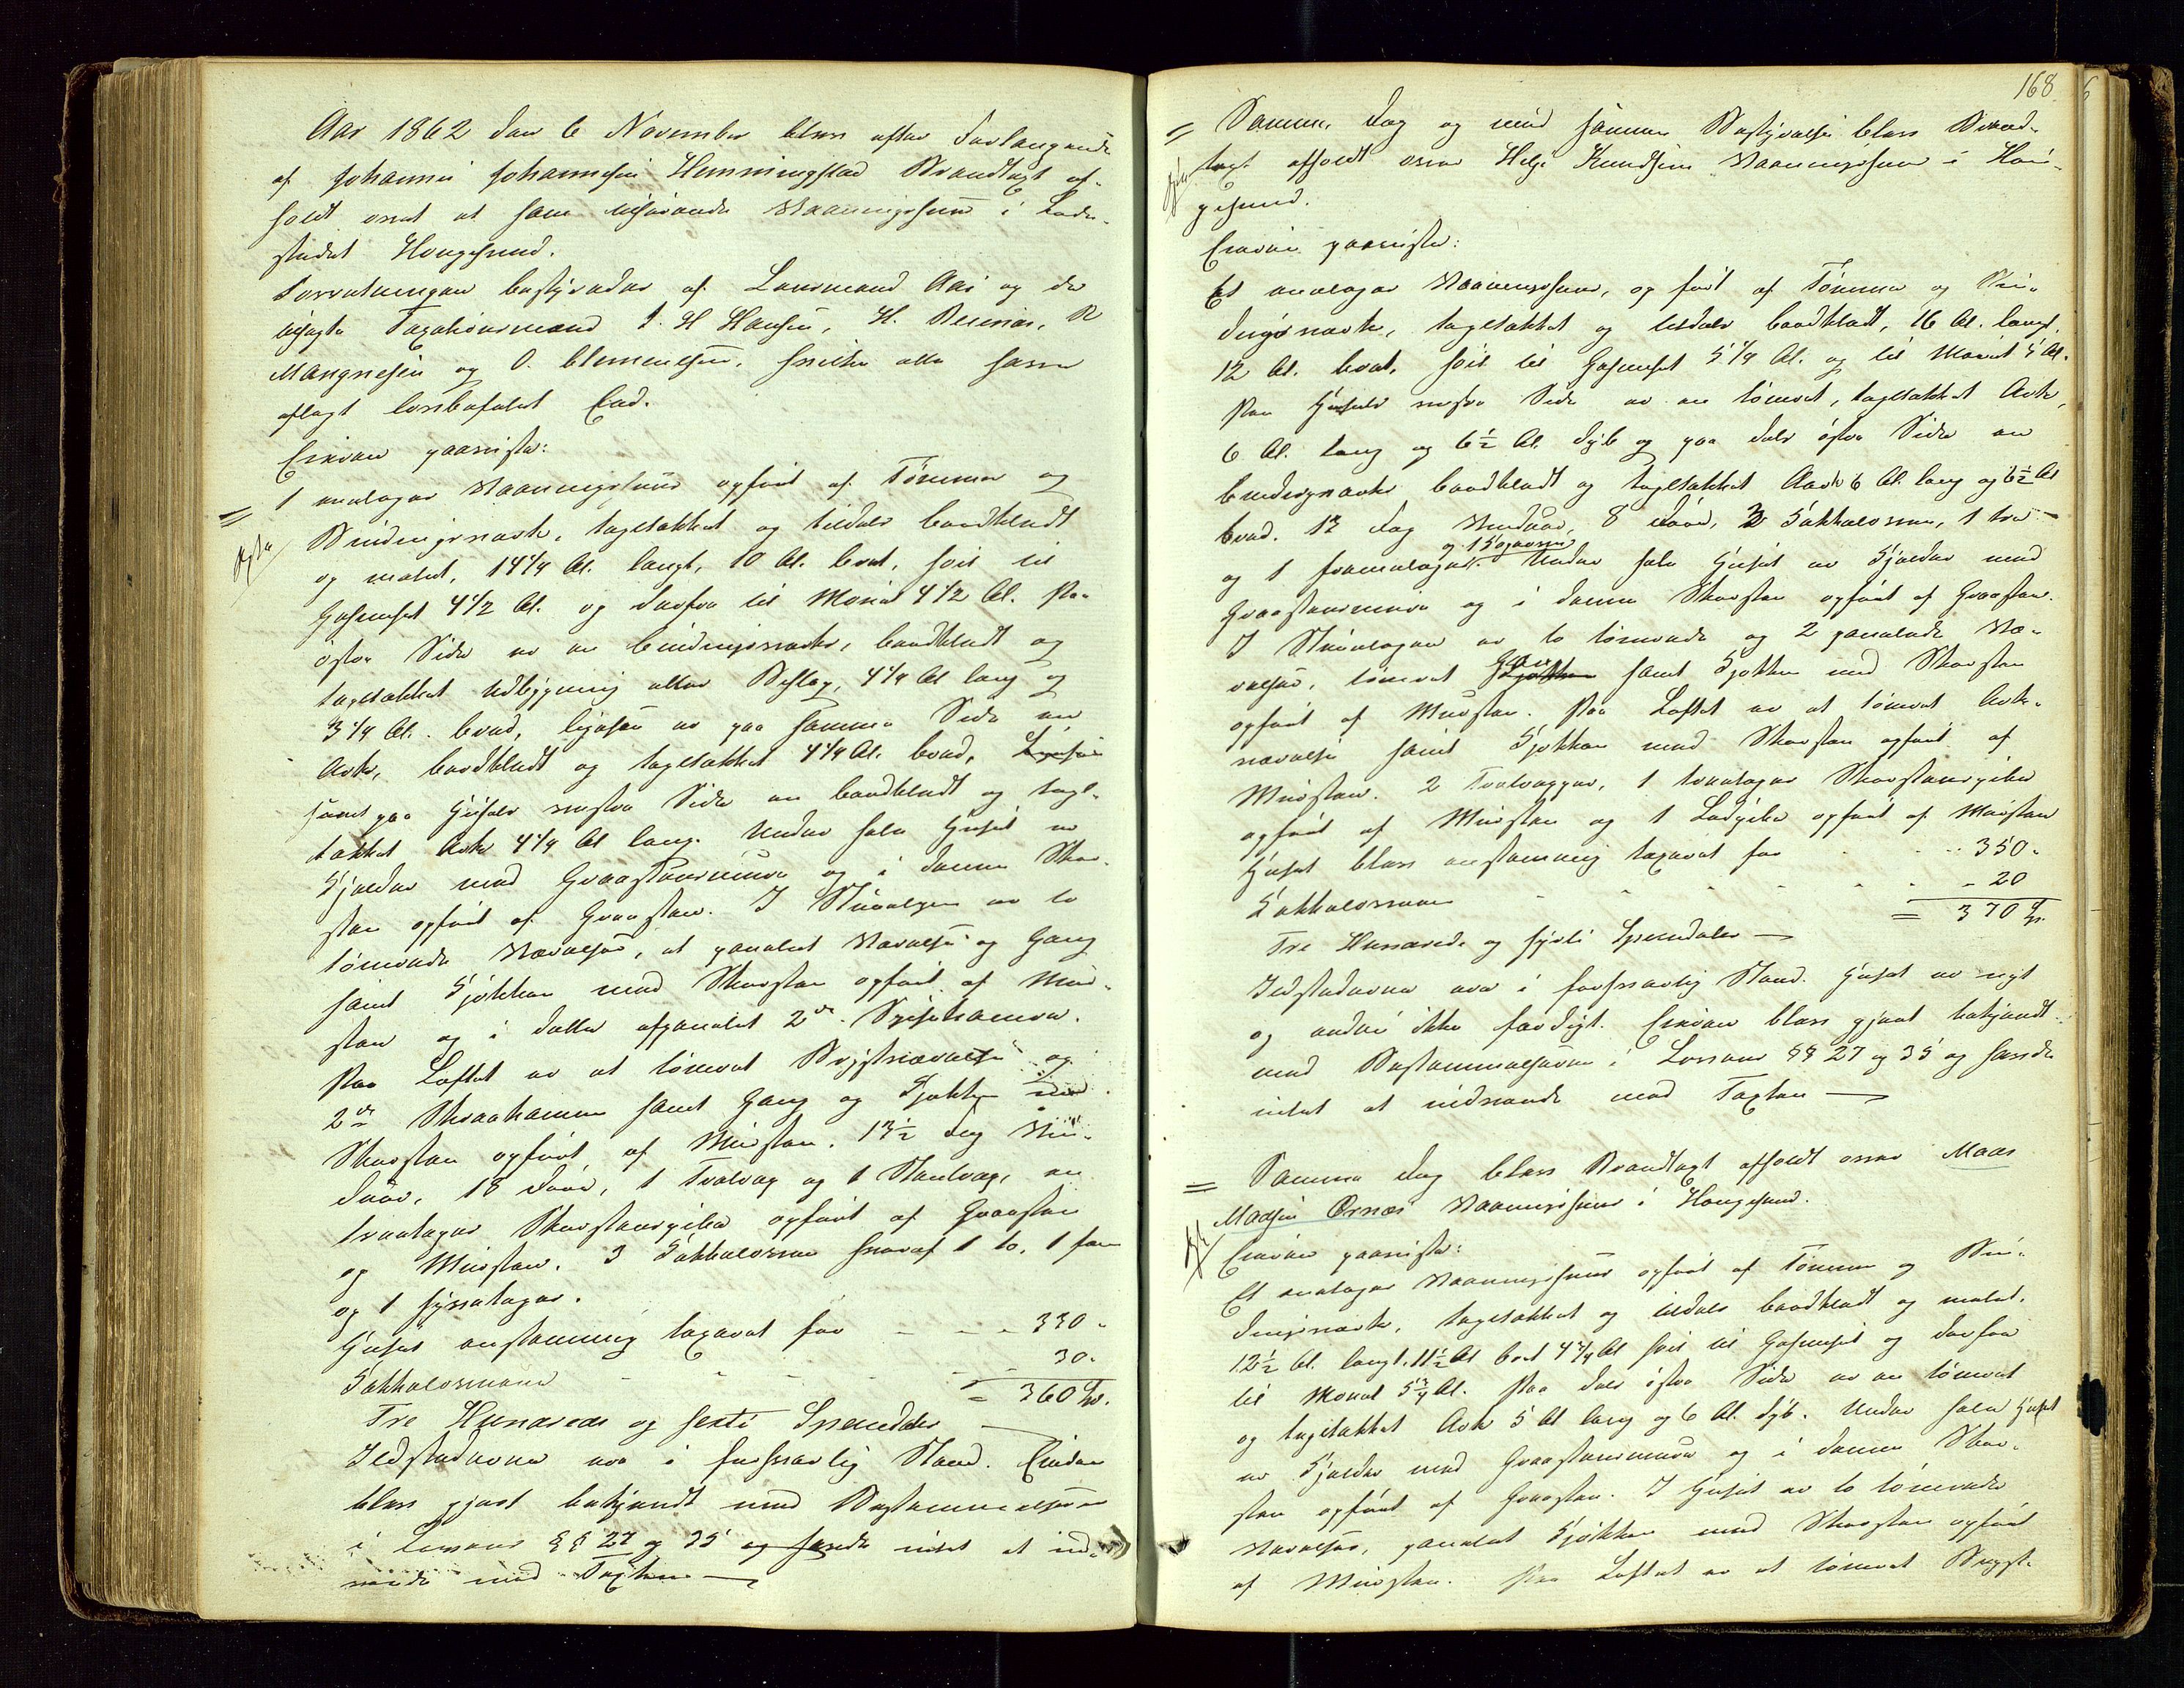 Aar 1862 den 6 November blev efter Forlangende
af Johannes Johannesen Hemmingstad Brandtagt af-
holdt over et ham tilhørende Vaaningshuus i Lade-
stedet Haugesund.
Forretningen bestyredes af Lensmand Aas og de
opnævnte Taxationsmænd J. H. Hansen, H. Reinias, R
Mangnesen og O. Clemensen, hvilke alle have
aflagt lovbefalet Eed.
Eieren paaviste:
1 enetages Vaaningshuus opført af Tømmer og
Bindingsverk, tagsteekket og tildels bordklædt
og malet, 14 1/4 Al. langt, 10 Al. bredt, høit til
Gesimset 4 1/2 Al. og derfra til Mønet 4 1/2 Al. Paa
østre Side er en bindingsverks, bordklædt og
tagtækket Udbygning eller Beslag, 4 1/4 Al lang og
3 1/4 Al. bred, ligesaa er paa samme Side en
Ark, bordklædt og tagtækket 4 1/4 Al. bred,
samt paa Husets vestre Side en bordklædt og tagt-
tækket Ark 4 1/4 Al lang. Under hele Huset er
Kjælder med Graasteensmure og i denne Skor-
sten opført af Graasten. I Stueetagen er to
tømrede Værelser, et panelet Værelse og Gang
samt Kjøkken med Skorsten opført af Muur-
sten og i dette afpanelet 2de Spisekamre.
Paa Loftet er et tømret Brystværelse og
2de Skraakamre samt Gang og Kjøkken med
Skorsten opført af Muursten. 13 1/2 Fag Vin-
duer, 18 Døre, 1 Tveltrap og 1 Stentrap, en
treetages Skorstenspibe opført af Graasten
og Muursten. 3 Kakkelovne hvoraf 1 to, 1 fem
og 1 fyreetages.
Huset anstændig taxeret for - - - 330 -
Kakkelovnene - - - 30 -
= 360 Spd.
Tre Hundrede og sexti Speciedaler —
Ildstederne ere i forsvarlig Stand. Eieren
blev gjort bekjendt med Bestemmelserne
i Lovens §§ 27 og 35 og havde intet at ind-
vende mod Taxten —
168
Samme Dag og med samme Bestyrelse blev Brand-
tagt afholdt over Helge Knudsens Vaaningshuus i Hau-
gesund.
Eieren paaviste:
Et enetages Vaaningshuus, opført af Tømmer og Bin-
dingsverk, tagtækket og tildels bordklædt, 16 Al. langt,
12 Al. bredt, høit til Gesimset 5 1/4 Al. og til Mønet 5 Al.
Paa Husets vestre Side er en tømret, tagtækket Ark,
6 Al. lang og 6 1/2 Al. dyb og paa dets østre Side en
bindingsverks bordklædt og tagtækket Ark 6 Al. lang og 6 1/2 Al
bred. 13 Fag Vinduer, 8 Døre, 3 Kakkelovne, 1 tre-
og 1 fireetages. og 1 Kogeovn Under hele Huset er Kjelder med
Graasteensmure og i denne Skorsten opført af Graasten.
I Stueetagen er to tømrede og 2 panelede Væ-
relser, tømret Gang samt Kjøkken med Skorsten
opført af Muursten. Paa Loftet er et tømret Ark-
værelse samt Kjøkken med Skorsten opført af
Muursten. 2 Trætrapper, 1 treetages Skorstenspibe
opført af Muursten og 1 Luftpibe opført af Muursten
Huset blev anstændig taxeret for - - 350 -
Kakkelovnene - - - 20
= 370 Spd.
Tre Hundrede og sytti Speciedaler —
Ildstederne ere i forsvarlig Stand. Huset er nyt
og endnu ikke færdigt. Eieren blev gjort bekjendt
med Bestemmelserne i Lovens §§ 27 og 35 og havde
intet at indvende mod Taxten —
Samme Dag blev Brandtagt afholdt over Maas
Madsen Ørnæs Vaaningshuus i Haugesund.
Eieren paaviste:
Et enetages Vaaningshuus opført af Tømmer og Bin-
dingsverk, tagtækket og tildels bordklædt og malet.
12 1/2 Al. langt, 11 1/2 Al bredt 4 3/4 Al høit til Gesimset og derfra
til Mønet 5 3/4 Al. Paa dets østre Side er en tømret
og tagtækket Ark 5 Al lang og 6 Al. dyb. Under hele Huset
er Kjælder med Graasteensmure og i denne Skor-
sten opført af Graasten. I Huset er to tømrede
Værelser, panelet Kjøkken med Skorsten opført
af Muursten. Paa Loftet er et tømret Bryst-